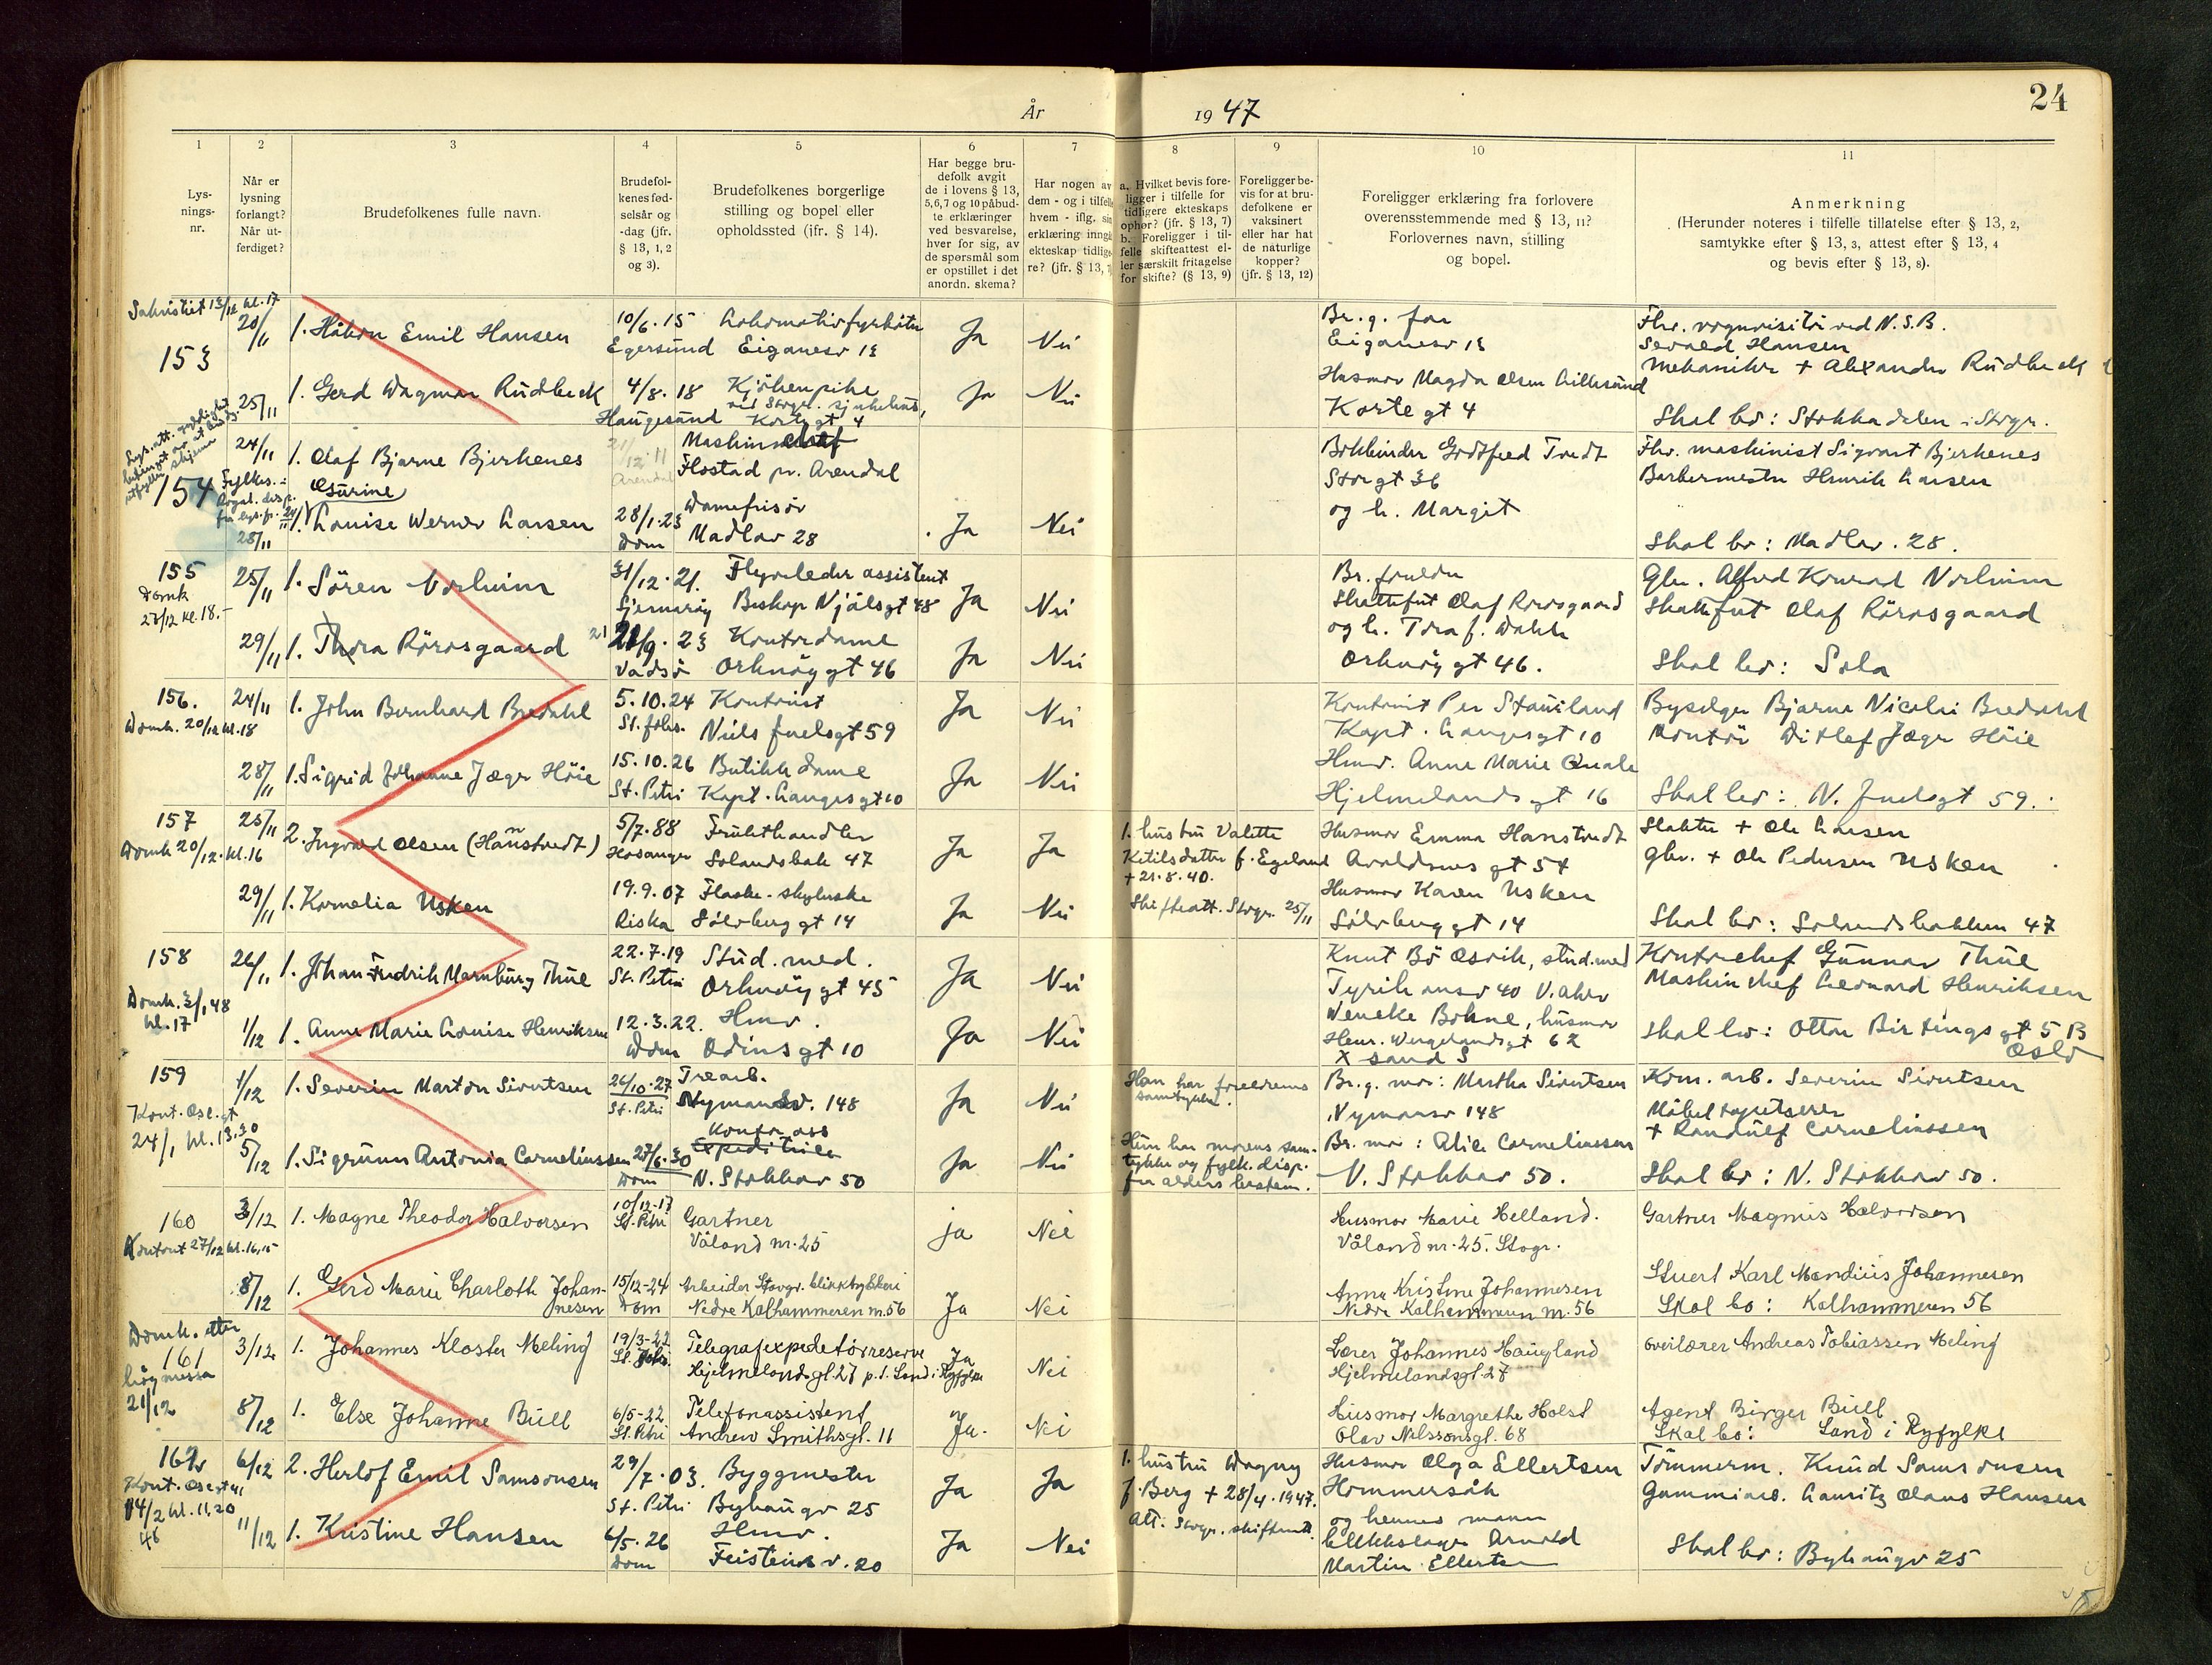 År 1947
24
1 2 3 4 5 6 7 8 9 10 11
Lysnings-nr.
Når er lysning forlangt? Når utferdiget?
Brudefolkenes fulle navn.
Brudefolkenes fødselsår og -dag (jfr. § 13, 1, 2 og 3).
Brudefolkenes borgerlige stilling og bopel eller opholdssted (jfr. § 14).
Har begge brudefolk avgit de i lovens § 13, 5, 6, 7 og 10 påbudte erklæringer ved besvarelse, hver for sig, av de spørsmål som er opstillet i det anordn. skema?
Har nogen av dem - og i tilfelle hvem - iflg. sin erklæring inngå ekteskap tidligere? (jfr. § 13, 7)
a. Hvilket bevis foreligger i tilfelle for tidligere ekteskaps ophør? (jfr. § 13, 7) b. Foreligger i tilfelle skifteattest eller særskilt fritagelse for skifte? (§ 13, 9)
Foreligger bevis for at brudefolkene er vaksinert eller har hat de naturlige kopper? (jfr. § 13, 12)
Foreligger erklæring fra forlovere overensstemmende med § 13, 11? Forlovernes navn, stilling og bopel.
Anmerkning (Herunder noteres i tilfelle tillatelse efter § 13, 2, samtykke efter § 13, 3, attest efter § 13, 4 og bevis efter § 13, 8).
153
20/11 1. Håkon Emil Hansen 10/6.15 Egersund Lokomotivfyrbøter Eiganesv 13 Ja Nei
Br.g. far Eiganesv 13
Fhv. vognvisitør ved N.S.B. Sevald Hansen
25/11 1. Gerd Dagmar Rudbeck 4/8.18 Haugesund Kjøkenpike Kortegt 4 Ja Nei
Husmor Magda Olsen Lillesund Kortegt 4
Mekaniker + Alexander Rudbeck
Skal bo: Stokkadalen i Stvgr.
154
24/11 1. Olaf Bjarne Bjerkenes Maskinchef Flostad pr. Arendal
Bokbinder Godtfred Tvedt Storgt 36 og h. Margit
Fhv. maskinist Sigvart Bjerkenes
Osurine
28/11 1. Louise Werner Larsen 28/1.23 Dom Damefrisør Madlav 28 Ja Nei
Barbermester Henrik Larsen
Skal bo: Madlav. 28.
155 Domk 27/12 kl.18.-
25/11 1. Sören Norheim 31/12.21. Sjernarøy Flyveleder assistent Biskop Njålsgt 48 Ja Nei
Br. foreldre Skattefut Olaf Rørosgaard og h. Tora f. Dahle Orknøygt 46.
Gbr. Alfred Konrad Norheim
29/11 1. Thora Rörosgaard 21/9.23 Vadsø Kontordame Orknøygt 46 Ja Nei
Skattefut Olaf Rörosgaard
Skal bo: Sola
156. Domk. 20/12 kl.18
24/11 1. John Bernhard Bredahl 5.10.24 St. Johs. Kontorist Niels Juelsgt 59 Ja Nei
Kontorist Per Stauiland Kapt. Langesgt 10
Byselger Bjarne Nicolai Bredahl
28/11 1. Sigrid Johanne Jæger Høie 15.10.26 St. Petri Butikkdame Kapt. Langesgt 10 Ja Nei
Hmv. Anne Marie Quale Hjelmelandsgt 16
Kontør Ditlef Jæger Höie
Skal bo: N. Juelsgt 59.
157 Domk 20/12. kl.16
25/11 2. Ingvald Olsen (Hanstvedt) 5/7.88 Hosanger Frukthandler Solandsbak 47 Ja Ja
1. hustru Valette Ketilsdatter f. Egeland + 21.8.40. Skifteatt. Stvgr. 25/11
Husmor Emma Hanstvedt Avaldsnesgt 54
Slakter + Ole Larsen
29/11 1. Kornelia Usken 19.9.07 Riska Flaske-skylerske Sölvberggt 14 Ja Nei
Husmor Karen Usken Sölvberggt 14
Gbr. + Ole Pedersen Usken
Skal bo: Solandsbakken 47
158 Domk. 3/1 48 kl. 17
26/11 1. Johan Fredrik Marnburg Thue 22.7.19 St. Petri Stud. med. Orknøygt 45 Ja Nei
Knut Bö Osvik, stud. med Tyrihansv 40 V. Aker
Kontorchef Gunnar Thue
1/12 1. Anne Marie Louise Henriksen 12.3.22. Dom Hmv. Odinsgt 10 Ja Nei
Wencke Bohne, husmor Henr. Wergelandsgt 62 X sand S
Maskinchef Leonard Henriksen
Skal bo: Ottar Birtingsgt 5 B Oslo
159 Kont. Ose.gt 24/1 kl. 13.30
1/12 1. Severin Marton Sivertsen 26/10.27 St. Petri Trearb. Nymansv. 148 Ja Nei
Han har foreldrenes samtykke.
Br.g. mor: Martha Sivertsen Nymansv 148
Kom. arb. Severin Sivertsen
5/12 1. Sigrunn Antonia Corneliussen 27/6.30 Dom Kontor ass Expeditrice N. Stokkav 50 Ja Nei
Hun har morens samtykke og fylk. disp. fra aldersbestem.
Br. mor: Alice Corneliussen N. Stokkav 50.
Möbeltapetserer + Randulf Corneliussen
Skal bo: N. Stokkav 50.
160 Kontoret 27/12 kl. 16.15
3/12 1. Magne Theodor Halvorsen 10/12-17 St. Petri Gartner Våland nr. 25 ja Nei
Husmor Marie Helland. Våland nr. 25. Stvgr.
Gartner Magnus Halvorsen
8/12 1. Gerd Marie Charlotte Johannesen 15/12-24 Dom Arbeider Stavgr. blikktrykkeri Nedre Kalhammeren nr. 56 Ja Nei
Anna Kristine Johannesen Nedre Kalhammeren nr. 56
Stuert Karl Mandius Johannesen
Skal bo: Kalhammeren 56
Domk. etter 161 høymessa 21/12
3/12 1. Johannes Kloster Meling 19/3-22 St. Johs. Telegrafexpeditørreserve Hjelmelandsgt. 27 p.t. Sand i Ryfylke Ja Nei
Lærer Johannes Haugland Hjelmelandsgt. 27
Overlærer Andreas Tobiassen Meling
8/12 1. Else Johanne Bull 6/5-22 St. Petri Telefonassistent Andrew Smithsgt. 11 Ja. Nei
Husmor Margrethe Holst Olav Nilssonsgt. 68
Agent Birger Bull
Skal bo: Sand i Ryfylke
162 14/2 kl. 11.20 48
6/12 2. Herlof Emil Samsonsen 29/7.03. St. Petri Byggmester Byhaugv 25 Ja Ja
1. hustru Dagny f. Berg + 28/4.1947. Att. Stvgr. skifterett.
Husmor Olga Ellertsen Hommersåk og hennes mann blikkslager Arnold Martin Ellertsen
Tömmerm. Knud Samsonsen
11/12 1. Kristine Hansen 6/5.26 Dom Hmv. Feisteinsv. 20 Ja Nei
Gummiarb. Lauritz Olaus Hansen
Skal bo: Byhaugv 25